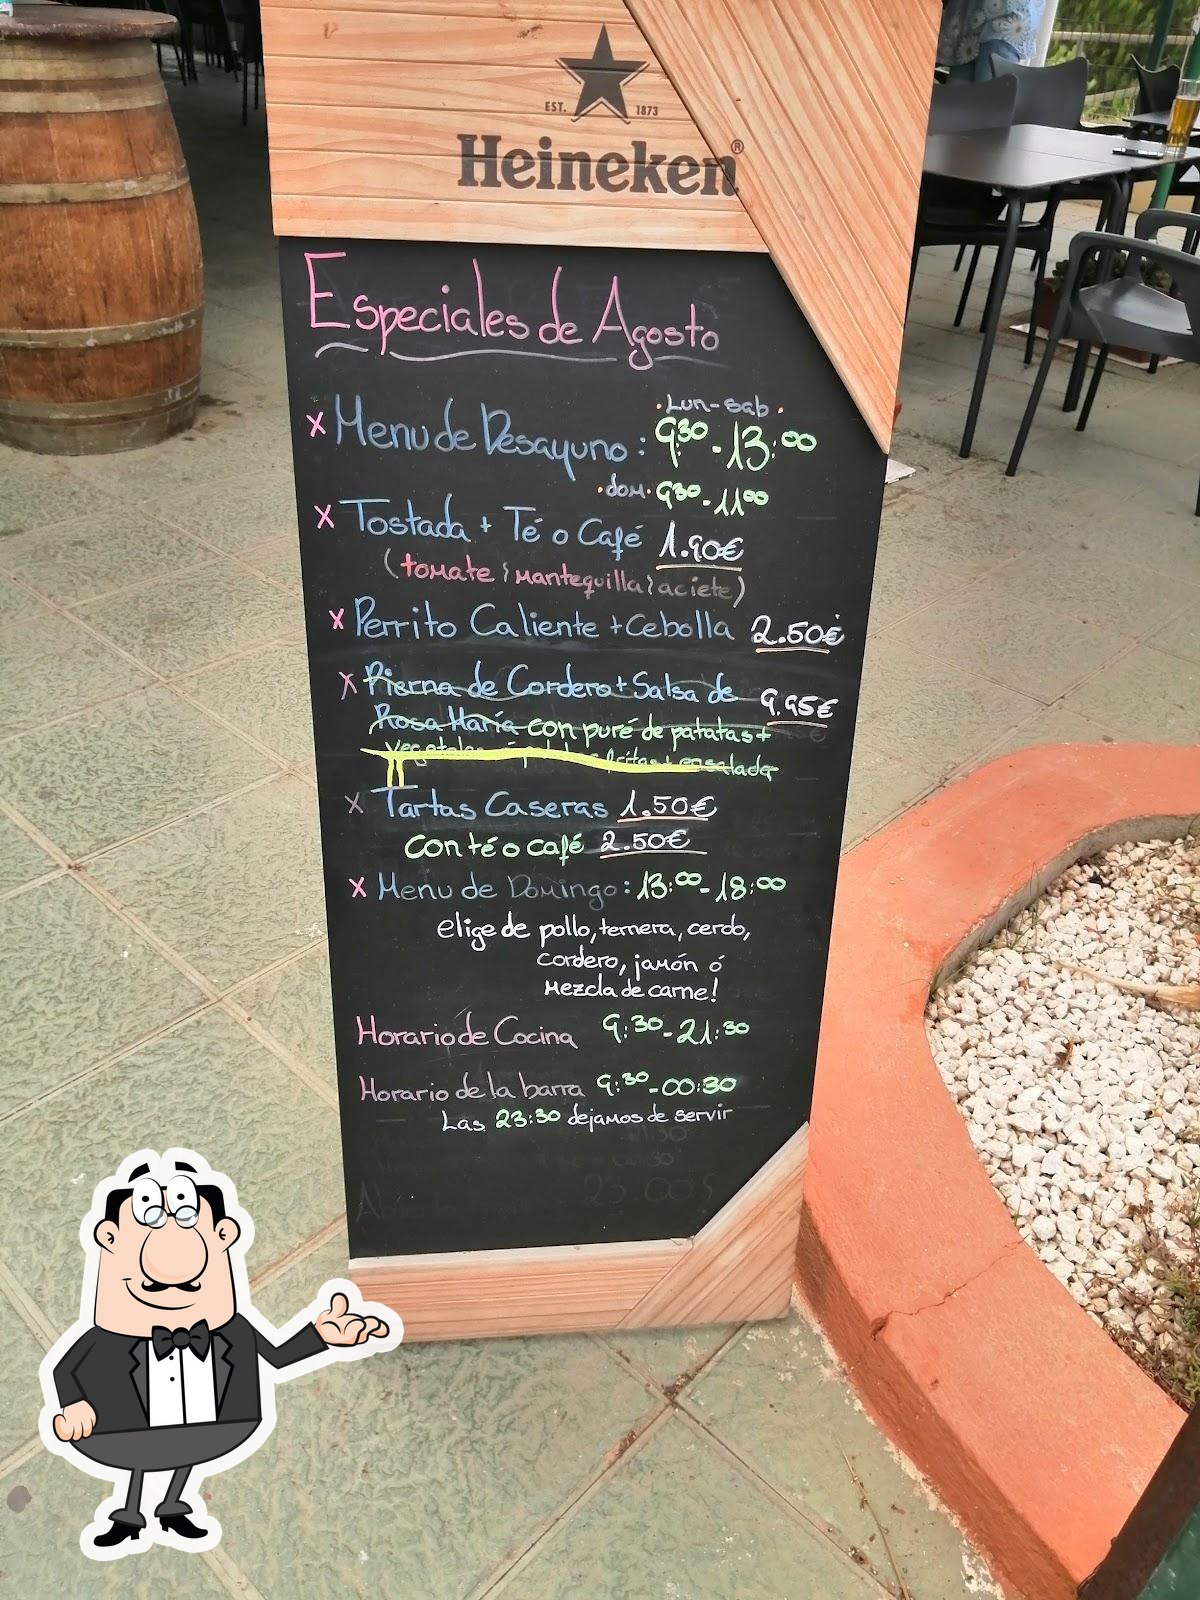 EST. 1873
Heineken®
Especiales de Agosto
· Lun-sab ·
x Menu de Desayuno : 9:30 - 13:00
· dom · 930 - 1100
x Tostada + Té o Café 1.90€
(tomate / mantequilla / aciete)
x Perrito Caliente + Cebolla 2.50€
x Pierna de Cordero + Salsa de 9.95€
Rosa María con puré de patatas +
ensalada
x Tartas Caseras 1.50€
con té o café 2.50€
x Menu de Domingo : 13:00 - 18:00
elige de pollo, ternera, cerdo,
cordero, jamón ó
mezcla de carne!
Horario de Cocina 9:30 - 21:30
Horario de la barra 9:30 - 00:30
Las 23:30 dejamos de servir